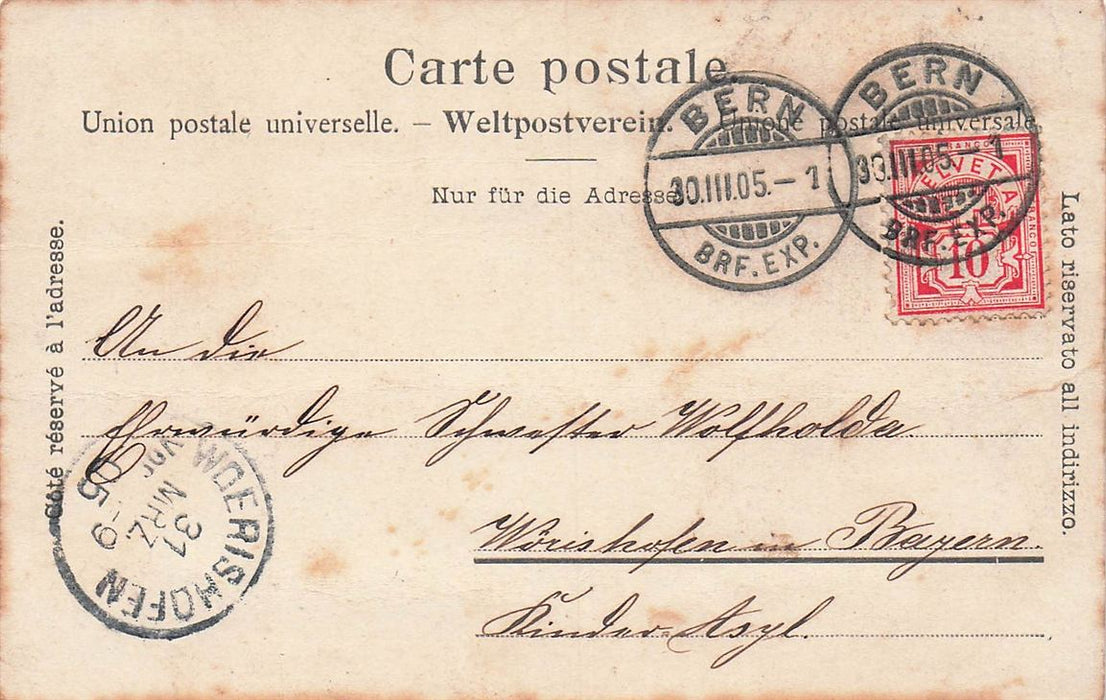 Carte postale.
Union postale universelle. – Weltpostverein. – Unione postale universale.
Nur für die Adresse.
Côté réservé à l'adresse.
Lato riservato all indirizzo.
BERN
30.III.05.–1
BRF. EXP.
BERN
30.III.05.–1
BRF. EXP.
FRANCO
HELVETIA
FRANCO
10
An die
Ehrwürdige Schwester Wolfholda.
Wörishofen in Bayern.
Kinder-Asyl.
WOERISHOFEN
31
MRZ
Vor
8-9
05